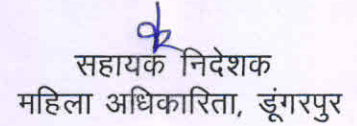 सहायक निदेशक
महिला अधिकारिता, डूंगरपुर